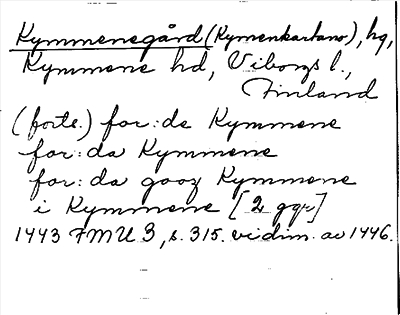 Kymmenegård (Kymenkartano), hg,
Kymmene hd, Viborgs l.,
Finland
(forte.) for: de Kymmene
for: da Kymmene
for: da gooz Kymmene
i Kymmene [2 ggr]
1443 FMU 3, s. 315. vidim. av 1446.